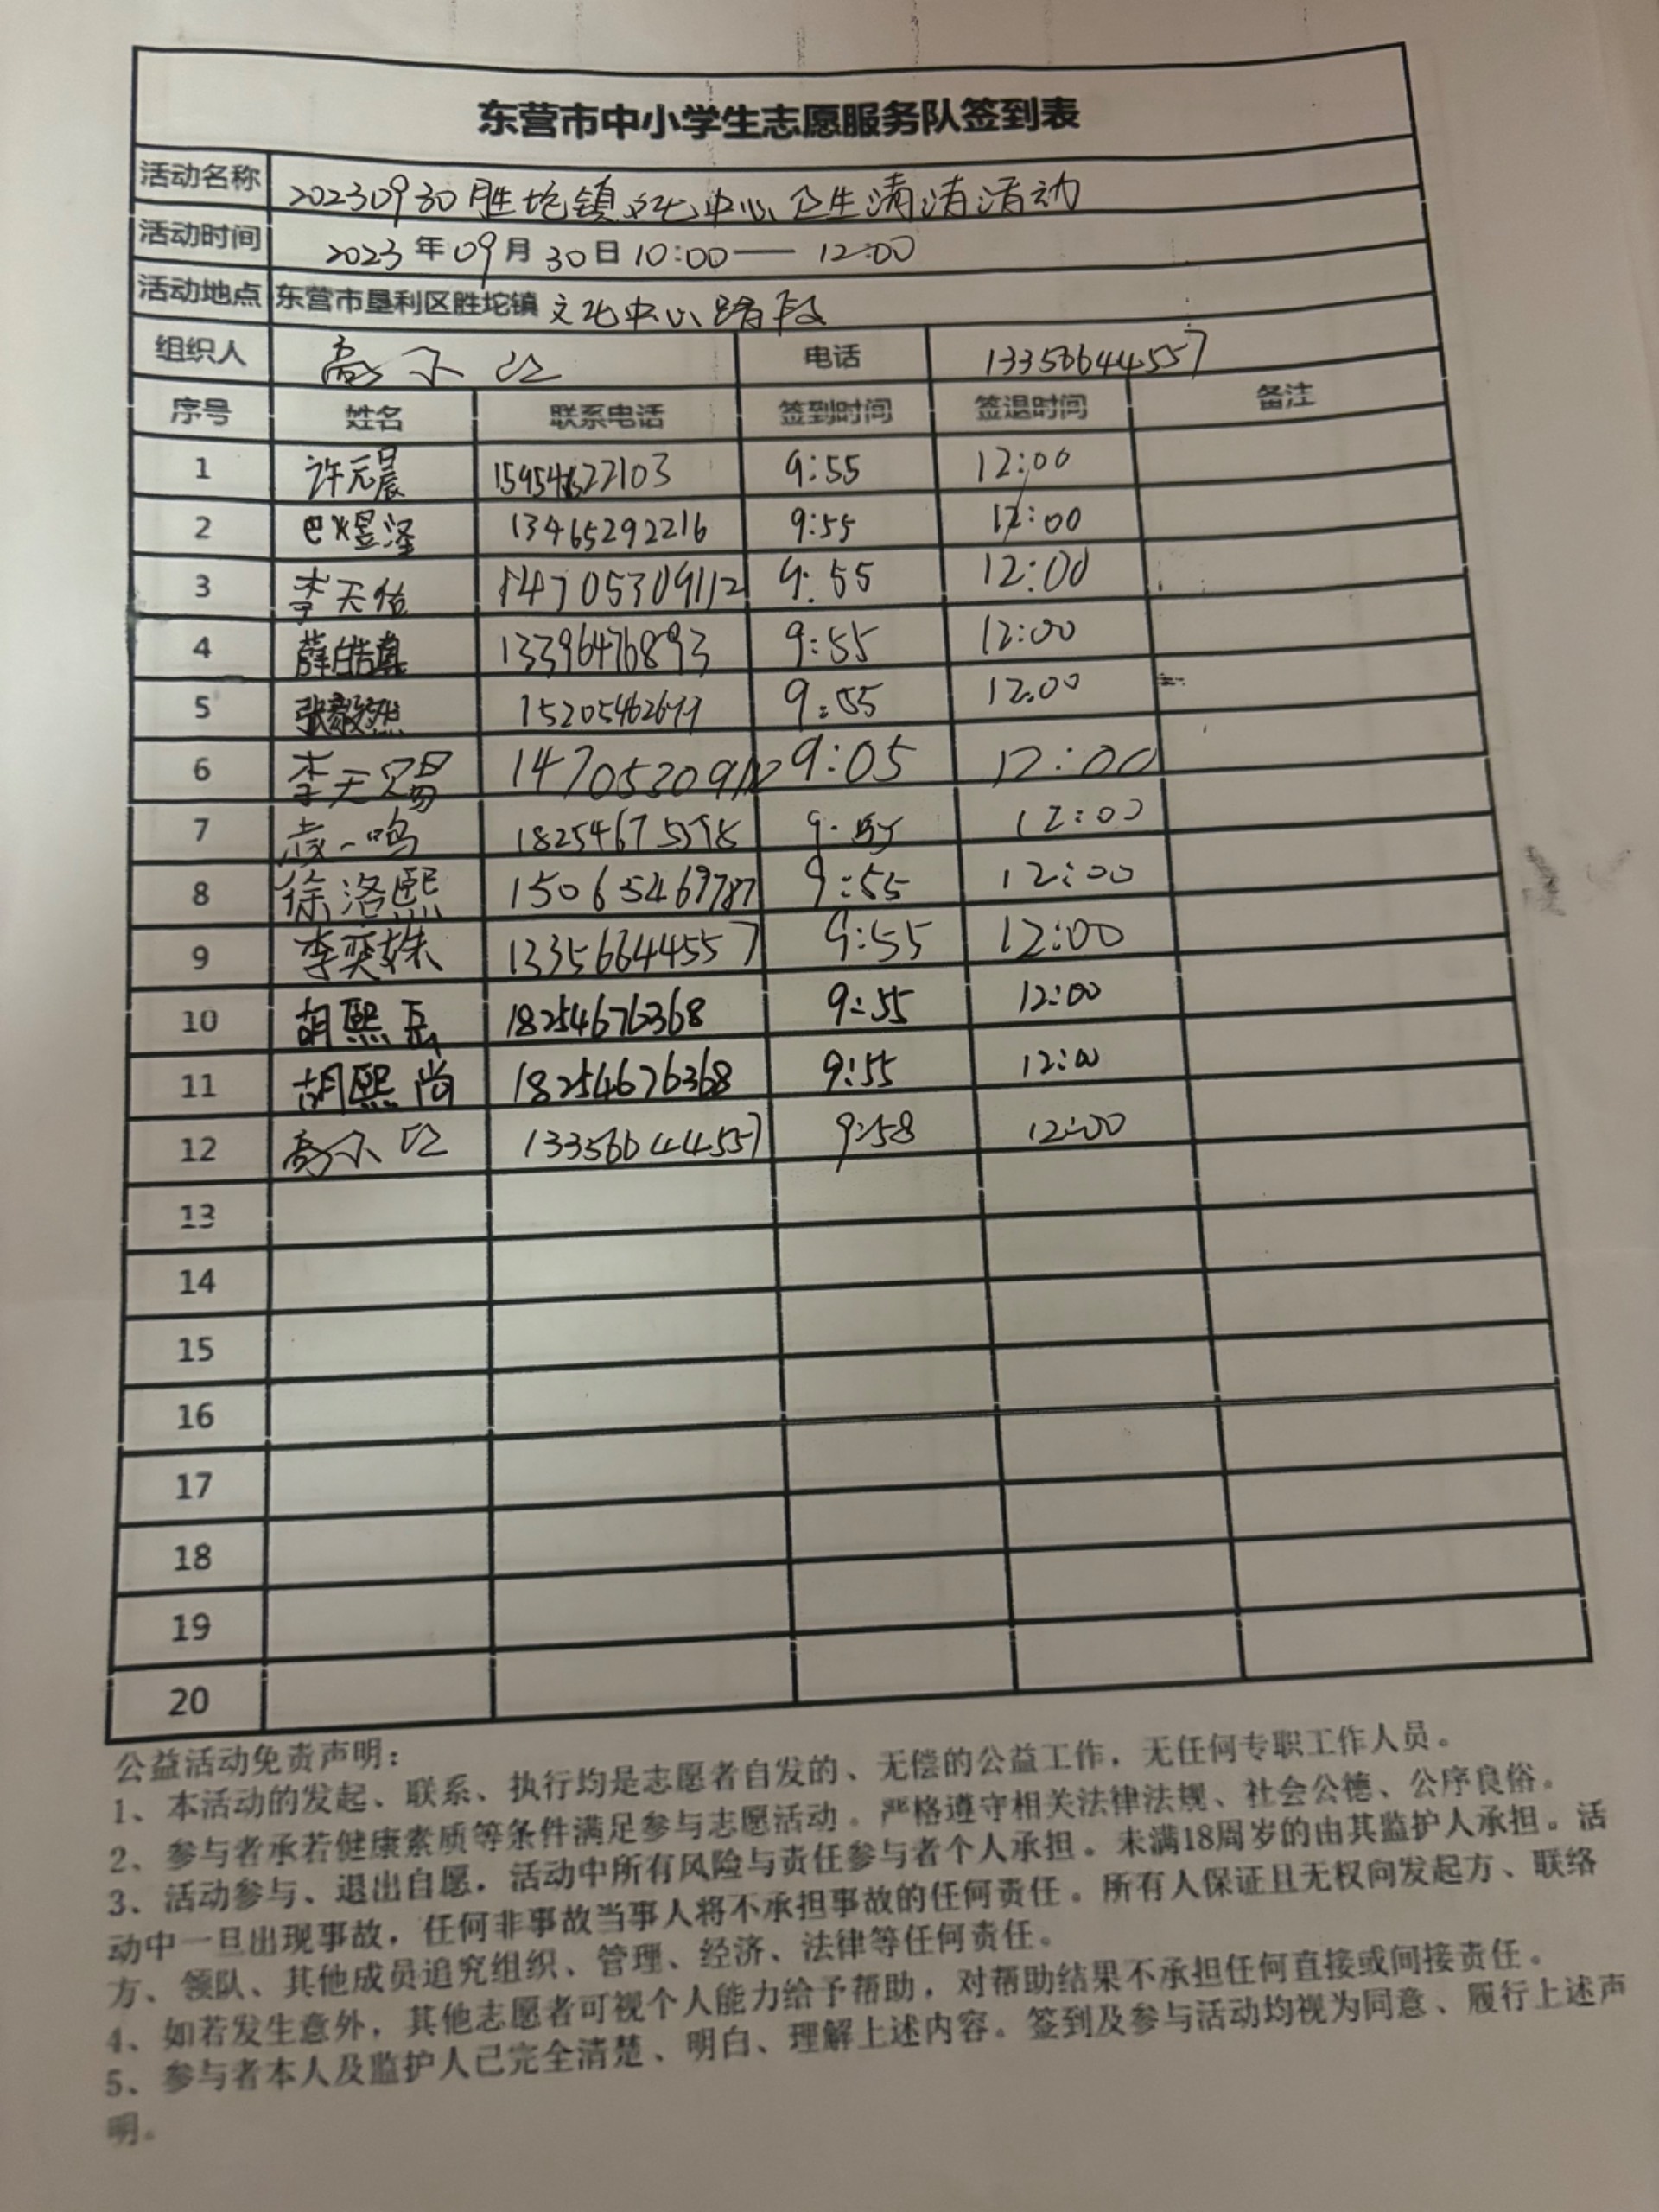 东营市中小学生志愿服务队签到表
活动名称 20230930胜坨镇文化中心卫生清洁活动
活动时间 2023年09月30日10:00——12:00
活动地点 东营市垦利区胜坨镇文化中心路段
组织人 高 电话 13356644557
序号 姓名 联系电话 签到时间 签退时间 备注
1 许元晨 15954622103 9:55 12:00
2 巴煜泽 13465292216 9:55 12:00
3 李天佑 14705309112 9:55 12:00
4 薛皓真 13396476893 9:55 12:00
5 张毅然 9:55 12:00
6 李天赐 9:05 12:00
7 一鸣 12:00
8 徐洛熙 15065469787 9:55 12:00
9 李奕姝 13356644557 9:55 12:00
10 胡熙岳 18254676368 9:55 12:00
11 胡熙尚 18254676368 9:55 12:00
12 高 13356644557 9:58 12:00
13
14
15
16
17
18
19
20
公益活动免责声明：
1、本活动的发起、联系、执行均是志愿者自发的、无偿的公益工作，无任何专职工作人员。
2、参与者承若健康素质等条件满足参与志愿活动。严格遵守相关法律法规、社会公德、公序良俗。
3、活动参与、退出自愿，活动中所有风险与责任参与者个人承担。未满18周岁的由其监护人承担。活
动中一旦出现事故，任何非事故当事人将不承担事故的任何责任。所有人保证且无权向发起方、联络
方、领队、其他成员追究组织、管理、经济、法律等任何责任。
4、如若发生意外，其他志愿者可视个人能力给予帮助，对帮助结果不承担任何直接或间接责任。
5、参与者本人及监护人已完全清楚、明白、理解上述内容。签到及参与活动均视为同意、履行上述声
明。